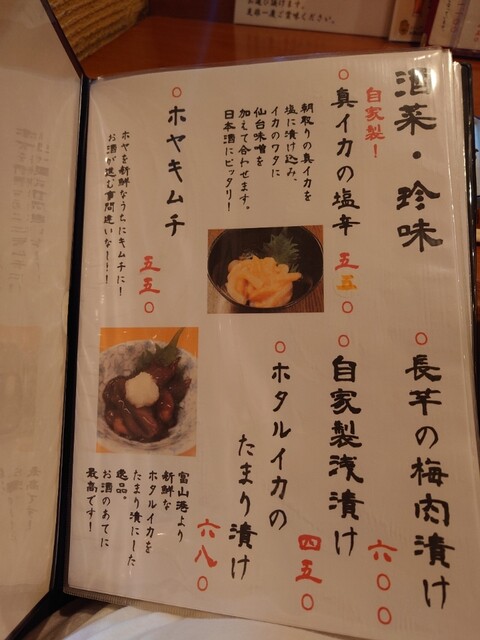 酒菜・珍味
自家製！
○真イカの塩辛
五五〇
朝取りの真イカを
塩に漬け込み、
イカのワタに
仙台味噌を
加えて合わせます。
日本酒にピッタリ！
○ホヤキムチ
五五〇
ホヤを新鮮なうちにキムチに！
お酒が進む事間違いなし！！
○長芋の梅肉漬け
六〇〇
○自家製浅漬け
四五〇
○ホタルイカの
たまり漬け
六八〇
富山港より
新鮮な
ホタルイカを
たまり漬にした
逸品。
お酒のあてに
最高です！